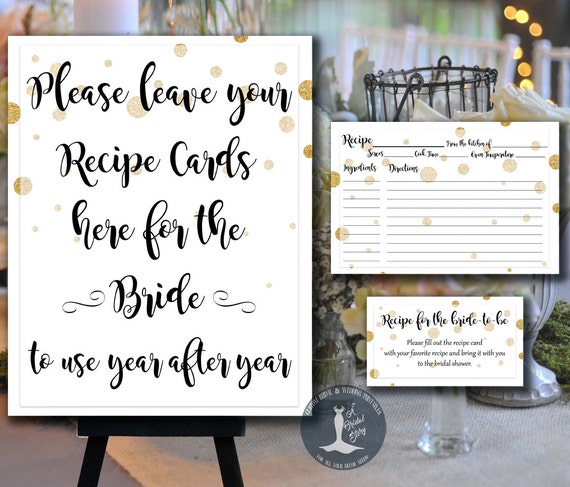 Please leave your
Recipe Cards
here for the
Bride
to use year after year
Recipe From the kitchen of
Serves Cook Time Oven Temperature
Ingredients Directions
Recipe for the bride-to-be
Please fill out the recipe card
with your favorite recipe and bring it with you
to the bridal shower.
A
Bridal
Story